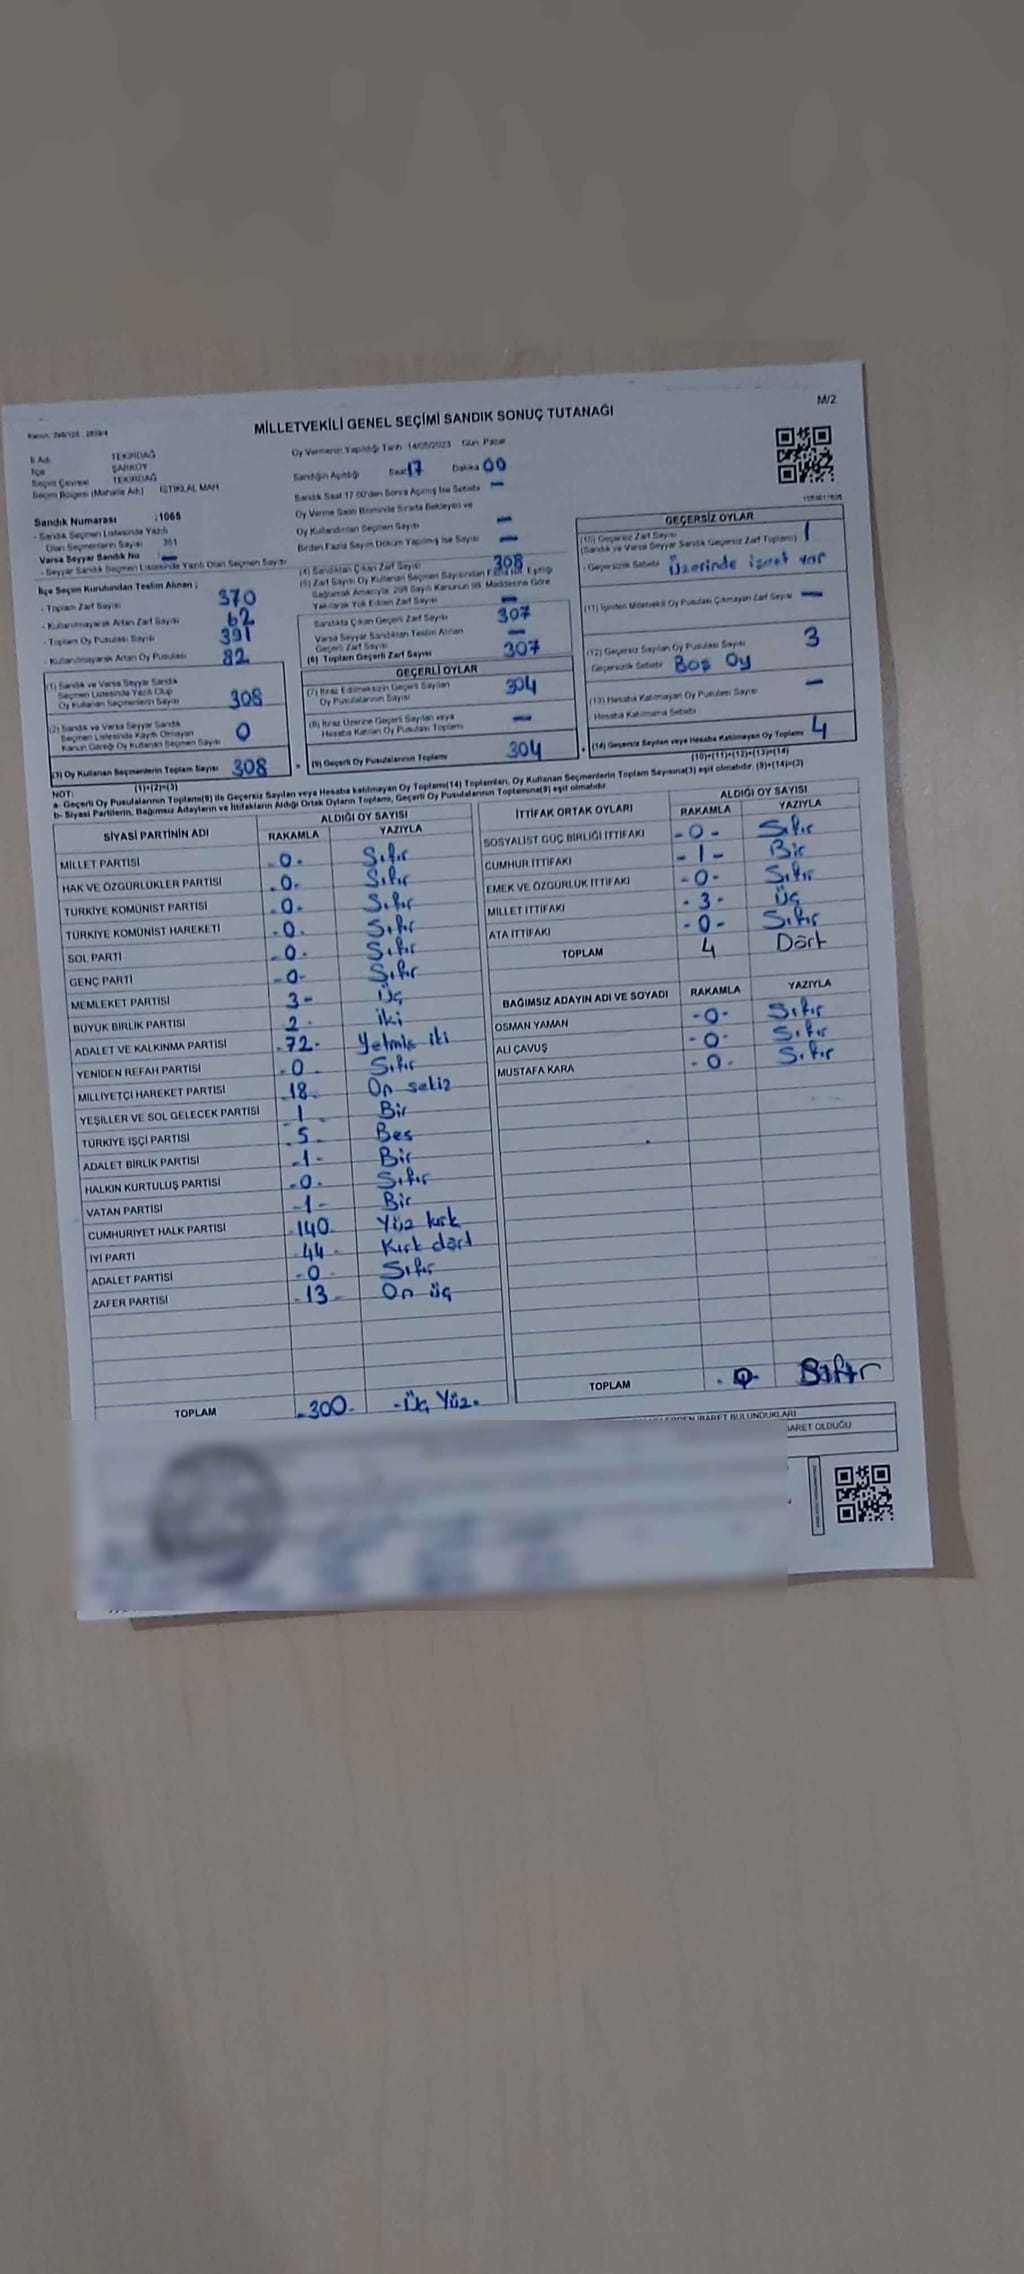 M/2
MİLLETVEKİLİ GENEL SEÇİMİ SANDIK SONUÇ TUTANAĞI
İl Adı TEKİRDAĞ
İlçe ŞARKÖY
Seçim Çevresi TEKİRDAĞ
Seçim Bölgesi (Mahalle Adı) İSTİKLAL MAH
Oy Vermenin Yapıldığı Tarih 14/05/2023 Gün Pazar
Sandığın Açıldığı Saat 17 Dakika 00
Sandık Saat 17.00'den Sonra Açılmış İse Sebebi -
Oy Verme Saati Bitiminde Sırada Bekleyen ve
Oy Kullandırılan Seçmen Sayısı -
Birden Fazla Sayım Döküm Yapılmış İse Sayısı -
Sandık Numarası :1065
- Sandık Seçmen Listesinde Yazılı
Olan Seçmenlerin Sayısı 351
Varsa Seyyar Sandık No : -
- Seyyar Sandık Seçmen Listesinde Yazılı Olan Seçmen Sayısı
İlçe Seçim Kurulundan Teslim Alınan ;
- Toplam Zarf Sayısı 370
- Kullanılmayarak Artan Zarf Sayısı 62
- Toplam Oy Pusulası Sayısı 391
- Kullanılmayarak Artan Oy Pusulası 82
(1) Sandık ve Varsa Seyyar Sandık
Seçmen Listesinde Yazılı Olup
Oy Kullanan Seçmenlerin Sayısı 308
(2) Sandık ve Varsa Seyyar Sandık
Seçmen Listesinde Kayıtlı Olmayan
Kanun Gereği Oy Kullanan Seçmen Sayısı 0
(3) Oy Kullanan Seçmenlerin Toplam Sayısı 308
(1)+(2)=(3)
(4) Sandıktan Çıkan Zarf Sayısı 308
(5) Zarf Sayısı Oy Kullanan Seçmen Sayısından Fazla İse, Eşitliği
Sağlamak Amacıyla, 298 Sayılı Kanunun 98. Maddesine Göre
Yakılarak Yok Edilen Zarf Sayısı -
Sandıkta Çıkan Geçerli Zarf Sayısı 307
Varsa Seyyar Sandıktan Teslim Alınan
Geçerli Zarf Sayısı -
(6) Toplam Geçerli Zarf Sayısı 307
GEÇERLİ OYLAR
(7) İtiraz Edilmeksizin Geçerli Sayılan
Oy Pusulalarının Sayısı 304
(8) İtiraz Üzerine Geçerli Sayılan veya
Hesaba Katılan Oy Pusulası Toplamı -
(9) Geçerli Oy Pusulalarının Toplamı 304
GEÇERSİZ OYLAR
(10) Geçersiz Zarf Sayısı
(Sandık ve Varsa Seyyar Sandık Geçersiz Zarf Toplamı) 1
- Geçersizlik Sebebi Üzerinde işaret var
(11) İçinden Milletvekili Oy Pusulası Çıkmayan Zarf Sayısı -
(12) Geçersiz Sayılan Oy Pusulası Sayısı 3
Geçersizlik Sebebi Boş Oy
(13) Hesaba Katılmayan Oy Pusulası Sayısı -
Hesaba Katılmama Sebebi
(14) Geçersiz Sayılan veya Hesaba Katılmayan Oy Toplamı 4
(10)+(11)+(12)+(13)=(14)
NOT:
a- Geçerli Oy Pusulalarının Toplamı(9) ile Geçersiz Sayılan veya Hesaba katılmayan Oy Toplamı(14) Toplamları, Oy Kullanan Seçmenlerin Toplam Sayısına(3) eşit olmalıdır. (9)+(14)=(3)
b- Siyasi Partilerin, Bağımsız Adayların ve İttifakların Aldığı Ortak Oyların Toplamı, Geçerli Oy Pusulalarının Toplamına(9) eşit olmalıdır
SİYASİ PARTİNİN ADI ALDIĞI OY SAYISI
RAKAMLA YAZIYLA
MİLLET PARTİSİ -0- Sıfır
HAK VE ÖZGÜRLÜKLER PARTİSİ -0- Sıfır
TÜRKİYE KOMÜNİST PARTİSİ -0- Sıfır
TÜRKİYE KOMÜNİST HAREKETİ -0- Sıfır
SOL PARTİ -0- Sıfır
GENÇ PARTİ -0- Sıfır
MEMLEKET PARTİSİ 3- Üç
BÜYÜK BİRLİK PARTİSİ -2- iki
ADALET VE KALKINMA PARTİSİ -72- Yetmiş iki
YENİDEN REFAH PARTİSİ -0- Sıfır
MİLLİYETÇİ HAREKET PARTİSİ -18- On sekiz
YEŞİLLER VE SOL GELECEK PARTİSİ 1 Bir
TÜRKİYE İŞÇİ PARTİSİ -5- Beş
ADALET BİRLİK PARTİSİ -1- Bir
HALKIN KURTULUŞ PARTİSİ -0- Sıfır
VATAN PARTİSİ -1- Bir
CUMHURİYET HALK PARTİSİ -140- Yüz kırk
İYİ PARTİ -44- Kırk dört
ADALET PARTİSİ -0- Sıfır
ZAFER PARTİSİ -13- On üç
TOPLAM -300- -Üç Yüz-
İTTİFAK ORTAK OYLARI ALDIĞI OY SAYISI
RAKAMLA YAZIYLA
SOSYALİST GÜÇ BİRLİĞİ İTTİFAKI -0- Sıfır
CUMHUR İTTİFAKI -1- Bir
EMEK VE ÖZGÜRLÜK İTTİFAKI -0- Sıfır
MİLLET İTTİFAKI -3- Üç
ATA İTTİFAKI -0- Sıfır
TOPLAM 4 Dört
BAĞIMSIZ ADAYIN ADI VE SOYADI RAKAMLA YAZIYLA
OSMAN YAMAN -0- Sıfır
ALİ ÇAVUŞ -0- Sıfır
MUSTAFA KARA -0- Sıfır
TOPLAM -0- Sıfır
İBARET BULUNDUKLARI
İBARET OLDUĞU